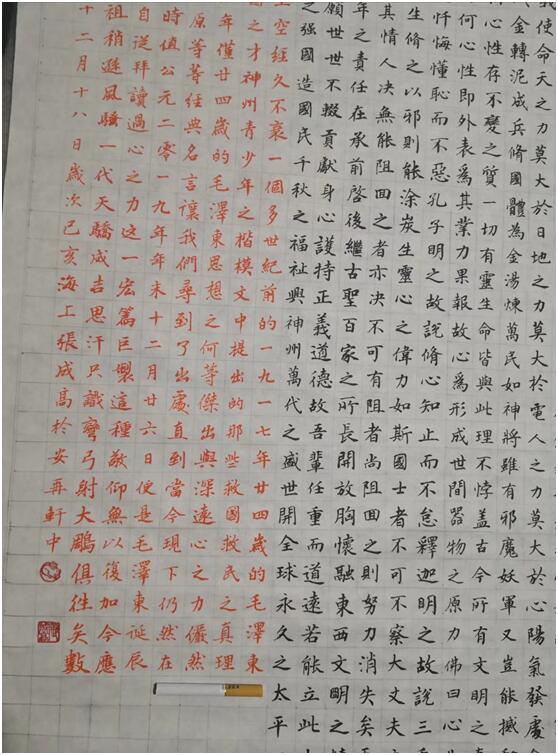 使命天之力莫大於日地之力莫大於電人之力莫大於心陽氣發處
金轉泥成兵脩國體為金湯煉萬民如神將雖有邪魔妖軍又豈能撼
心性存不變之質一切有靈生命皆與此理不悖蓋古今所有文明之
何心性即外表為其業力果報故心為形成世間器物之原力佛曰心
忏悔懂恥而不惡孔子明之故說脩心知止而不怠釋迦明之故說三
生脩之以邪則能涂炭生靈心之偉力如斯國士者不可不察大丈夫
其情人决無能阻回之者亦决不可有阻者尚阻回之則努力消失矣
年之責任在承前啓後繼古聖百家之所長開放胸懷融東西文明之
願世世不輟貢獻身心護持正義道德故吾輩任重而道遠若能立此
之强國造國民千秋之福祉興神州萬代之盛世開全球永久之太平
空經久不衰一個多世紀前的一九一七年廿四歲的毛澤東
之才神州青少年之楷模文中提出的那些救國救民之真理
年僅廿四歲的毛澤東思想之何等傑出與深遠心之力儼然
原等等經典名言讓我們尋到了出處直到當今現下仍然在
時值公元二零一九年年末十二月廿六日便是毛澤東誕辰
自從拜讀過心之力這一宏篇巨製這種敬仰無以復加今應
祖稍遜風騷一代天驕成吉思汗只識彎弓射大鵰俱往矣數
十二月十八日歲次己亥海上張成高於安再軒中